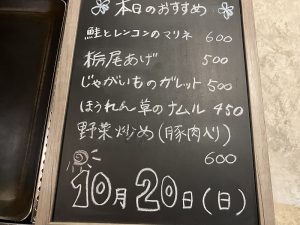 本日のおすすめ
鮭とレンコンのマリネ 600
栃尾あげ 500
じゃがいものガレット 500
ほうれん草のナムル 450
野菜炒め(豚肉入り)
600
10月20日(日)